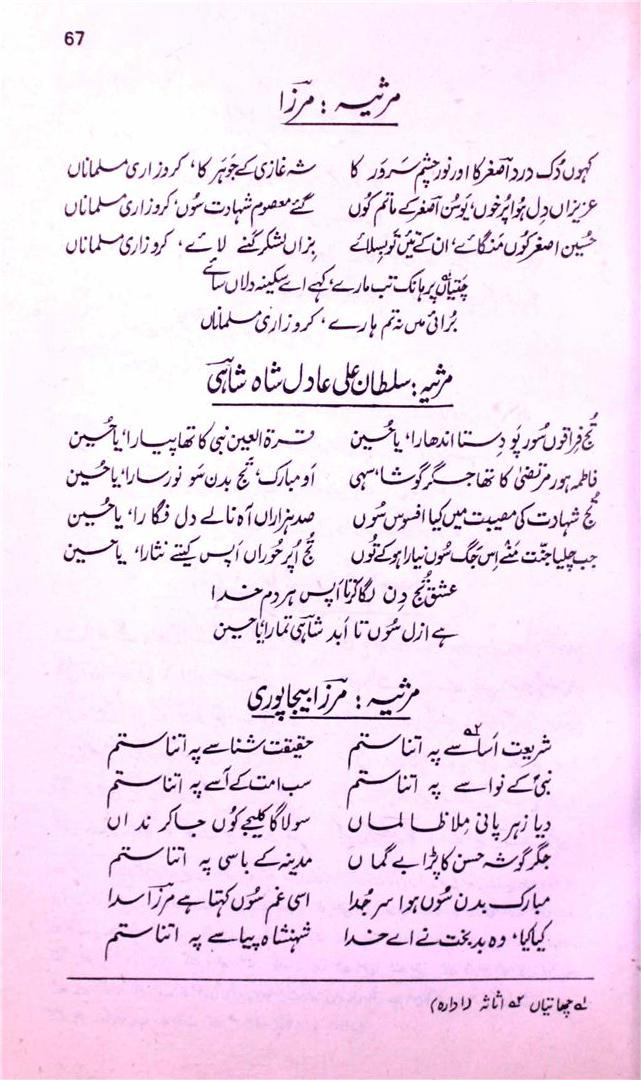 67
مرثیہ : مرزا
کہوں دُک درد اصغر کا اور نور چشم سرور کا شہ غازی کے جوہر کا، کرو زاری مسلماناں
عزیزاں دل ہوا پُر خوں، یو سُن اصغر کے ماتم کوں گئے معصوم شہادت سوں، کرو زاری مسلماناں
حسین اصغر کوں منگائے، ان کے تئیں تو بہلائے بزاں لشکر کنے لائے، کرو زاری مسلماناں
چھتیاں پر ہانک تب مارے، کہے اے سکینہ دلاں سائے
بُرائی میں نہ تم ہارے، کرو زاری مسلماناں
مرثیہ : سلطان علی عادل شاہ شاہی
تُج فراقوں سُور پو دِستا اندھارا، یا حسین قرۃ العین نبی کا تھا پیارا، یا حسین
فاطمہ ہور مرتضیٰ کا تھا جگر گوشا، سہی او مبارک، تُج بدن سو نور سارا، یا حسین
تُج شہادت کی مصیبت میں کیا افسوس سُوں صد ہزاراں آہ نالے دل فگارا، یا حسین
جب چلیا جنّت منے اِس جگ سُوں نیارا ہو کے تُوں تُج اُپر حُوراں اَپس کیتے نثارا، یا حسین
عشق تُج دِن لگا کرنا اَپس ہر دم خدا
ہے ازل سُوں تا اَبد شاہی تمارا، یا حسین
مرثیہ : مرزا بیجاپوری
شریعت اَساسے ۲ پہ اتنا ستم حقیقت شناسے پہ اتنا ستم
نبی کے نواسے پہ اتنا ستم سب امت کے آسے پہ اتنا ستم
دیا زہر پانی مِلا ظالماں سو لاگا کلیجے کوں جا کر نداں
جگر گوشہ حسن کا پڑا بے گماں مدینہ کے باسی پہ اتنا ستم
مبارک بدن سُوں ہوا سر جُدا اسی غم سُوں کہتا ہے مرزا سدا
کیا کیا، وہ بد بخت نے اے خدا شہنشاہ پیاسے پہ اتنا ستم
۱ چھاتیاں ۲ اثاثہ (ادارہ)